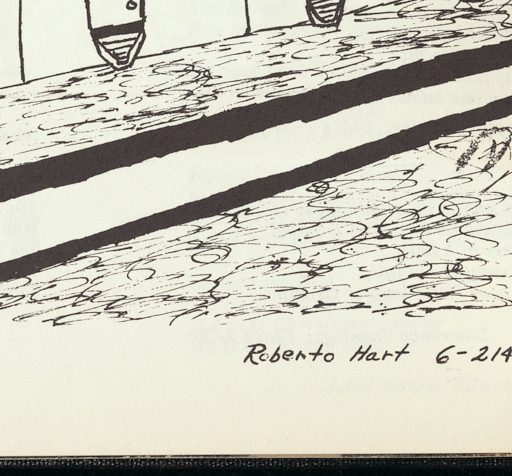 Roberto Hart 6-214